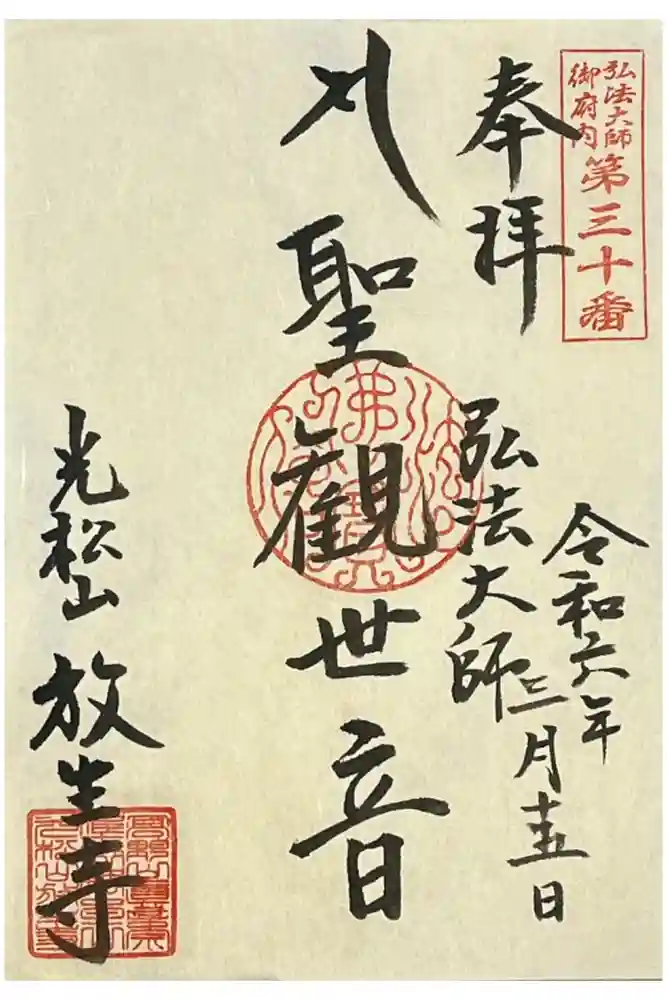 弘法大師
御府内
第三十番
奉拝
令和六年
三月十五日
弘法大師
聖観世音
光松山 放生寺